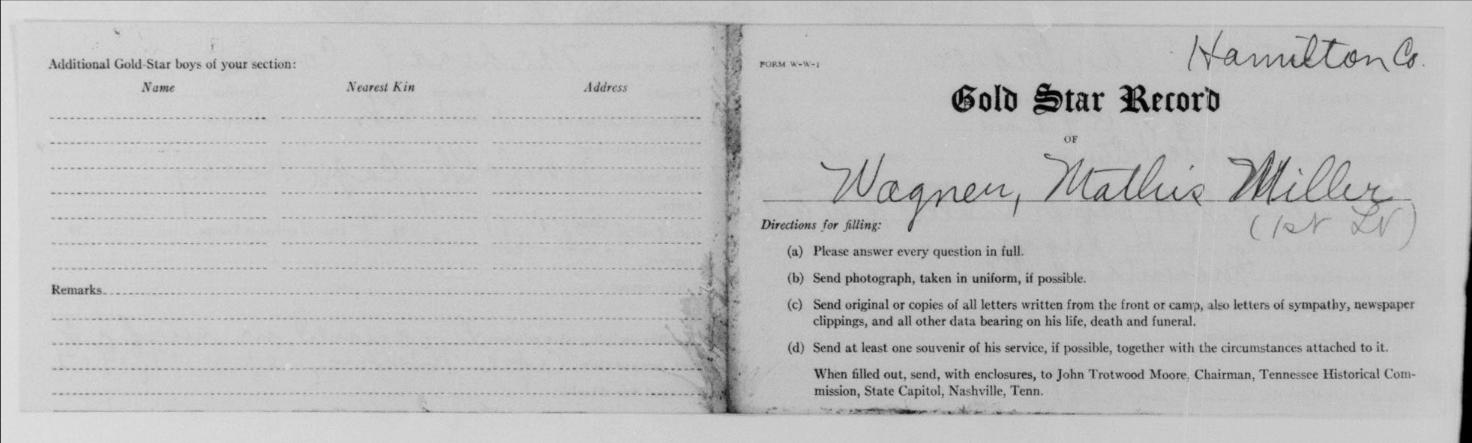 Additional Gold-Star boys of your section:
Name Nearest Kin Address
Remarks
Hamilton Co.
FORM W-W-1
Gold Star Record
OF
Wagner, Mathis Miller
(1st Lt)
Directions for filling:
(a) Please answer every question in full.
(b) Send photograph, taken in uniform, if possible.
(c) Send original or copies of all letters written from the front or camp, also letters of sympathy, newspaper
clippings, and all other data bearing on his life, death and funeral.
(d) Send at least one souvenir of his service, if possible, together with the circumstances attached to it.
When filled out, send, with enclosures, to John Trotwood Moore, Chairman, Tennessee Historical Com-
mission, State Capitol, Nashville, Tenn.